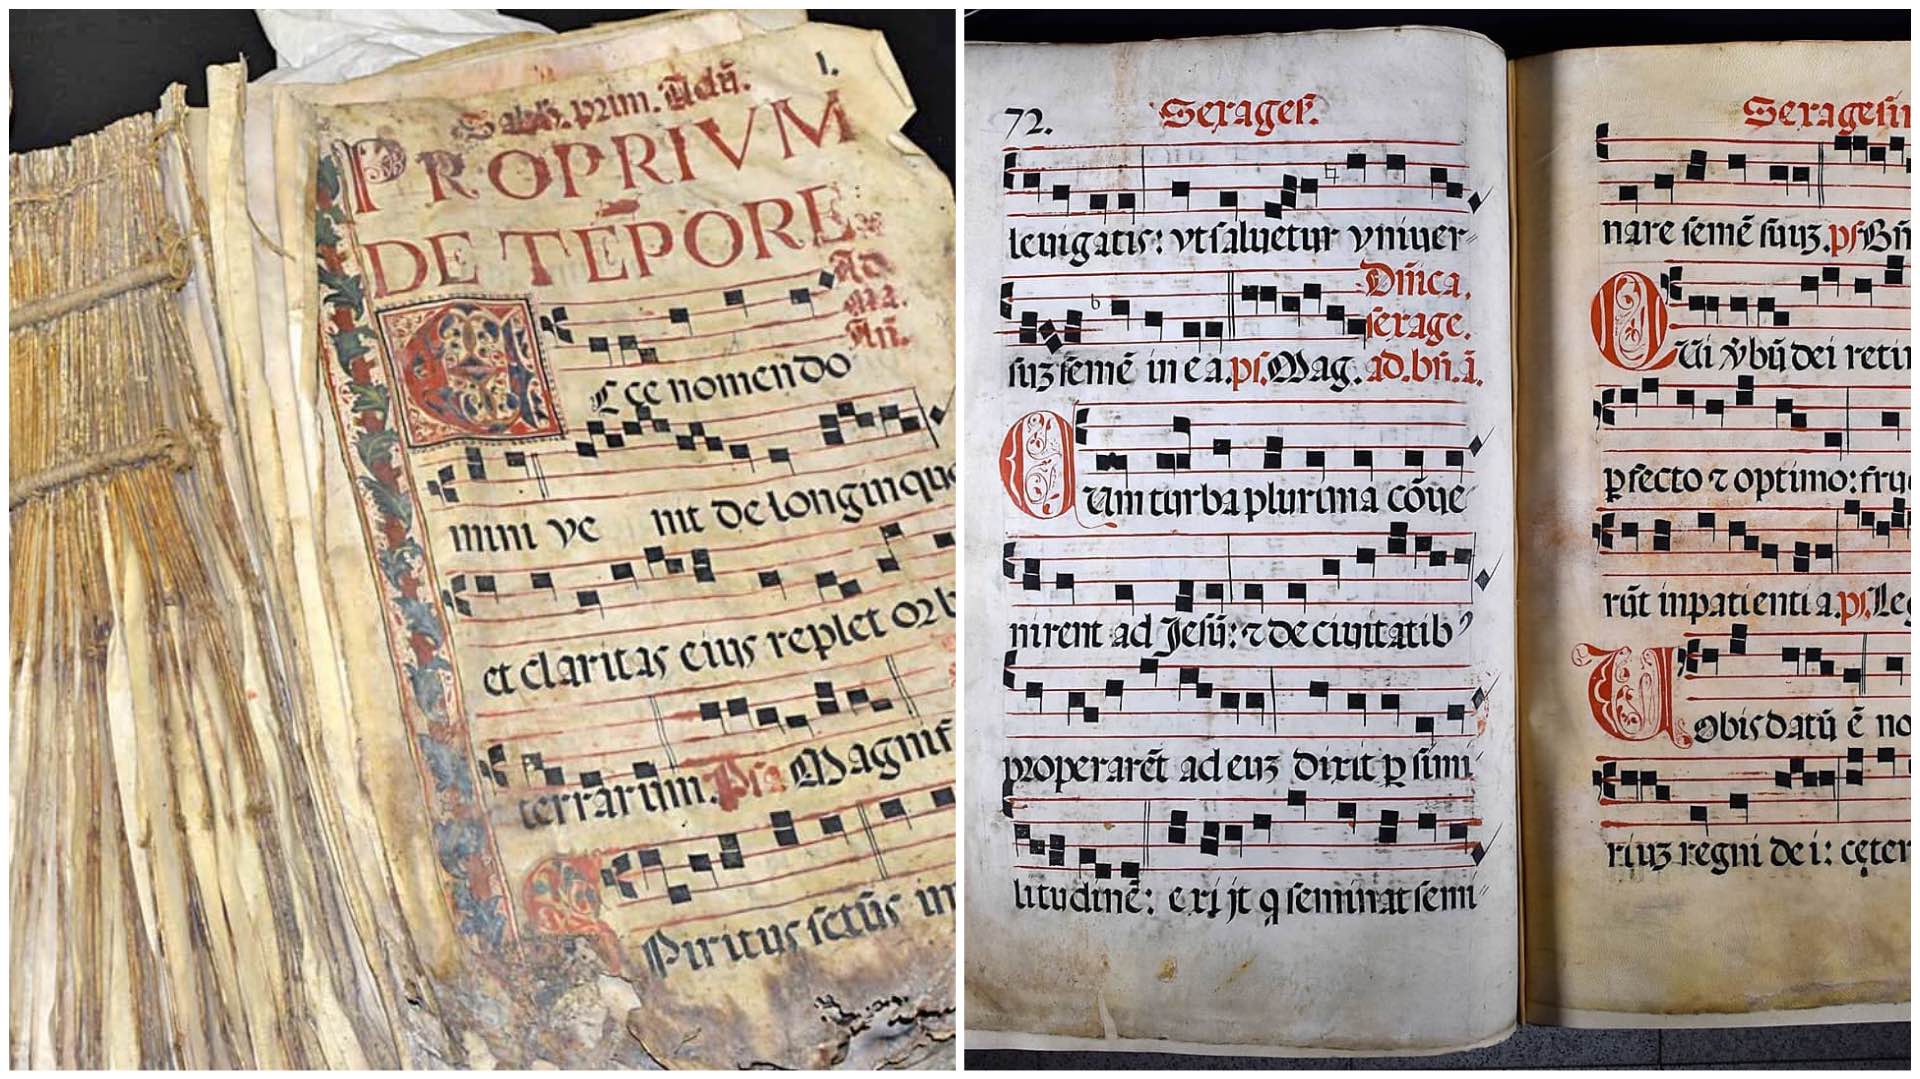 1.
Sabb. prim. Adū.
PROPRIVM
DE TĒPORE.
Ad
Ma.
Añ.
Ecce nomen do
mini ve nit de longinquo
et claritas eius replet orb
terrarum. Psa Magnif
Spiritus sctūs in
72.
Sexages.
leuigatis: vt saluetur vniuer-
suʒ semē in ea. ps. Mag. ad. bñ. ā.
Dñica.
sexage.
Cum turba plurima cōue
nirent ad Jesū: ⁊ de ciuitatibꝰ
properarēt ad euʒ dixit ꝑ simi
litudinē: exijt q seminat semi
Sexagesim
nare semē suuʒ. ps. Bñ
Qui ꝟbū dei retin
ꝑfecto ⁊ optimo: fruc
rūt in patientia. ps. Le
Uobis datū ē no
riuʒ regni dei: cęter